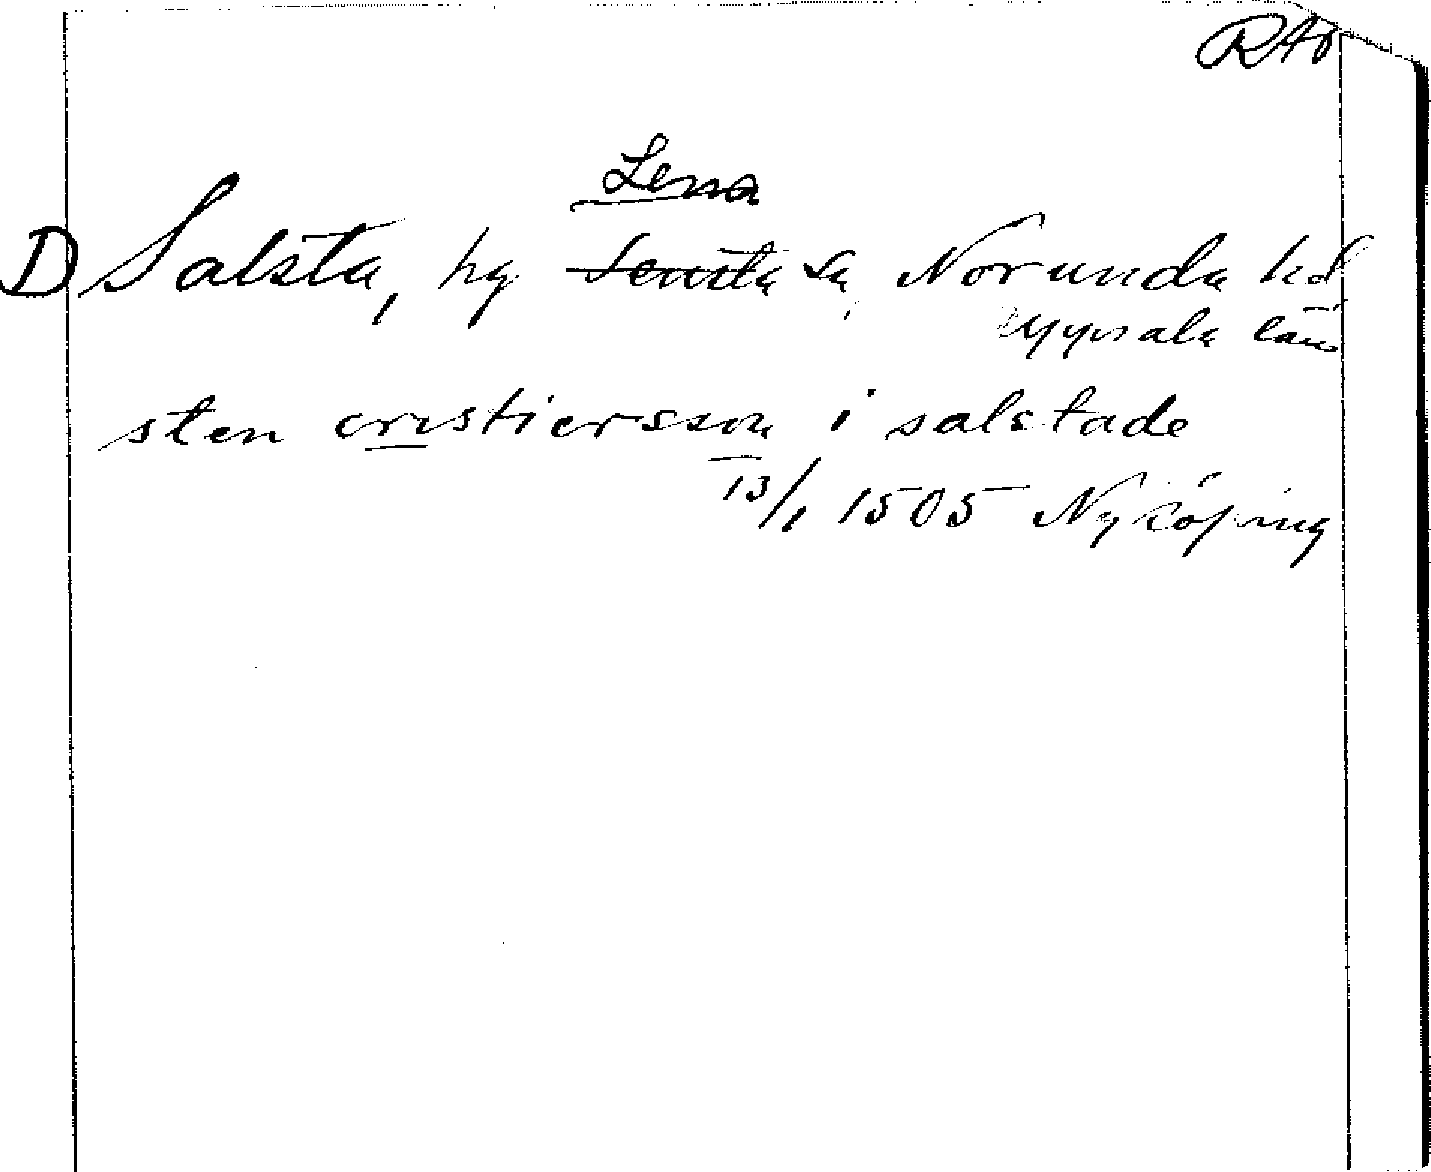 RAp
Lena
D Salsta, hg Tensta sn, Norunda hd
Uppsala län
sten cristiersson i salstade
13/1 1505 Nyköping